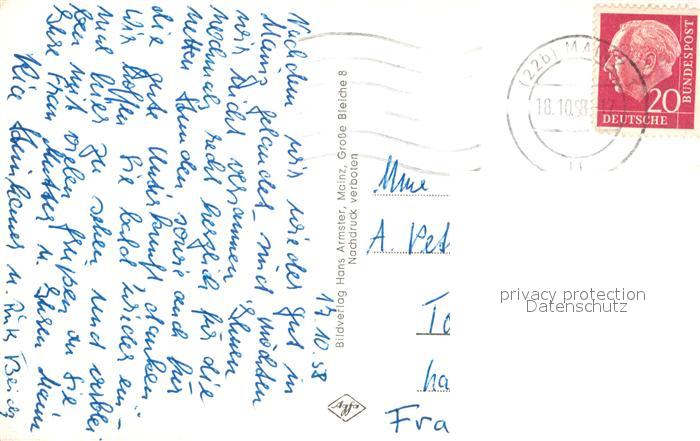 17.10.58
Nachdem wir wieder gut in
Mainz gelandet sind möchten
wir nicht versäumen Ihnen
nochmals recht herzlich für die
netten Stunden sowie auch für
die gute Unterkunft danken
Wir hoffen Sie bald wieder ein-
mal hier zu sehen und verblei-
ben mit vielen Grüßen an Sie
Ihre Frau Mutter u. Ihren Mann
Bildverlag Hans Armster, Mainz, Große Bleiche 8
Nachdruck verboten
Agfa
(22b) MAINZ
18.10.58
20
DEUTSCHE
BUNDESPOST
Mme
A. Pet
To
ha
Fra
privacy protection
Datenschutz